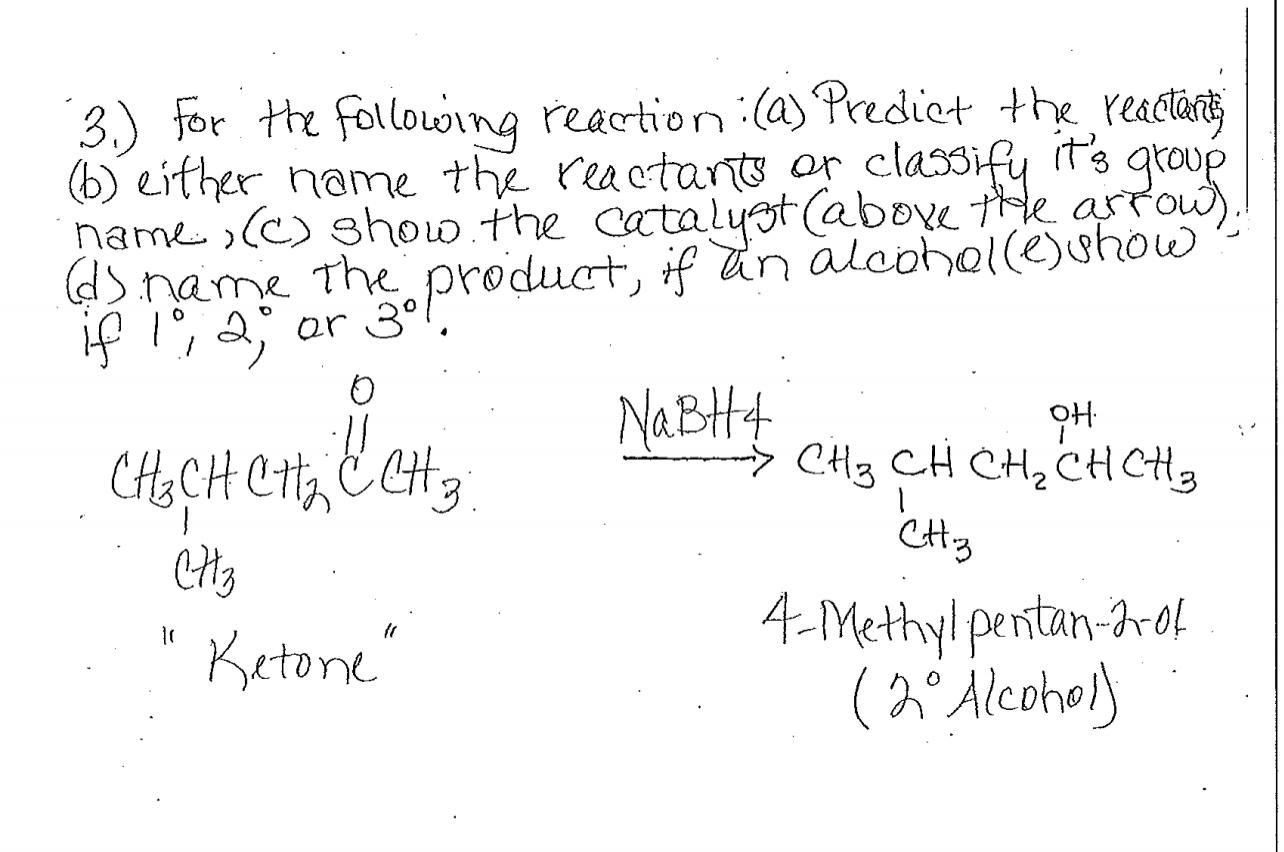 3.) For the following reaction: (a) Predict the reactants
(b) either name the reactants or classify it's group
name, (c) show the catalyst (above the arrow).
(d) name the product, if an alcohol (e) show
if 1°, 2°, or 3°!.
O
||
CH3CHCH2CCH3
|
CH3
"Ketone"
NaBH4
→
OH
|
CH3CHCH2CHCH3
|
CH3
4-Methylpentan-2-ol
(2° Alcohol)